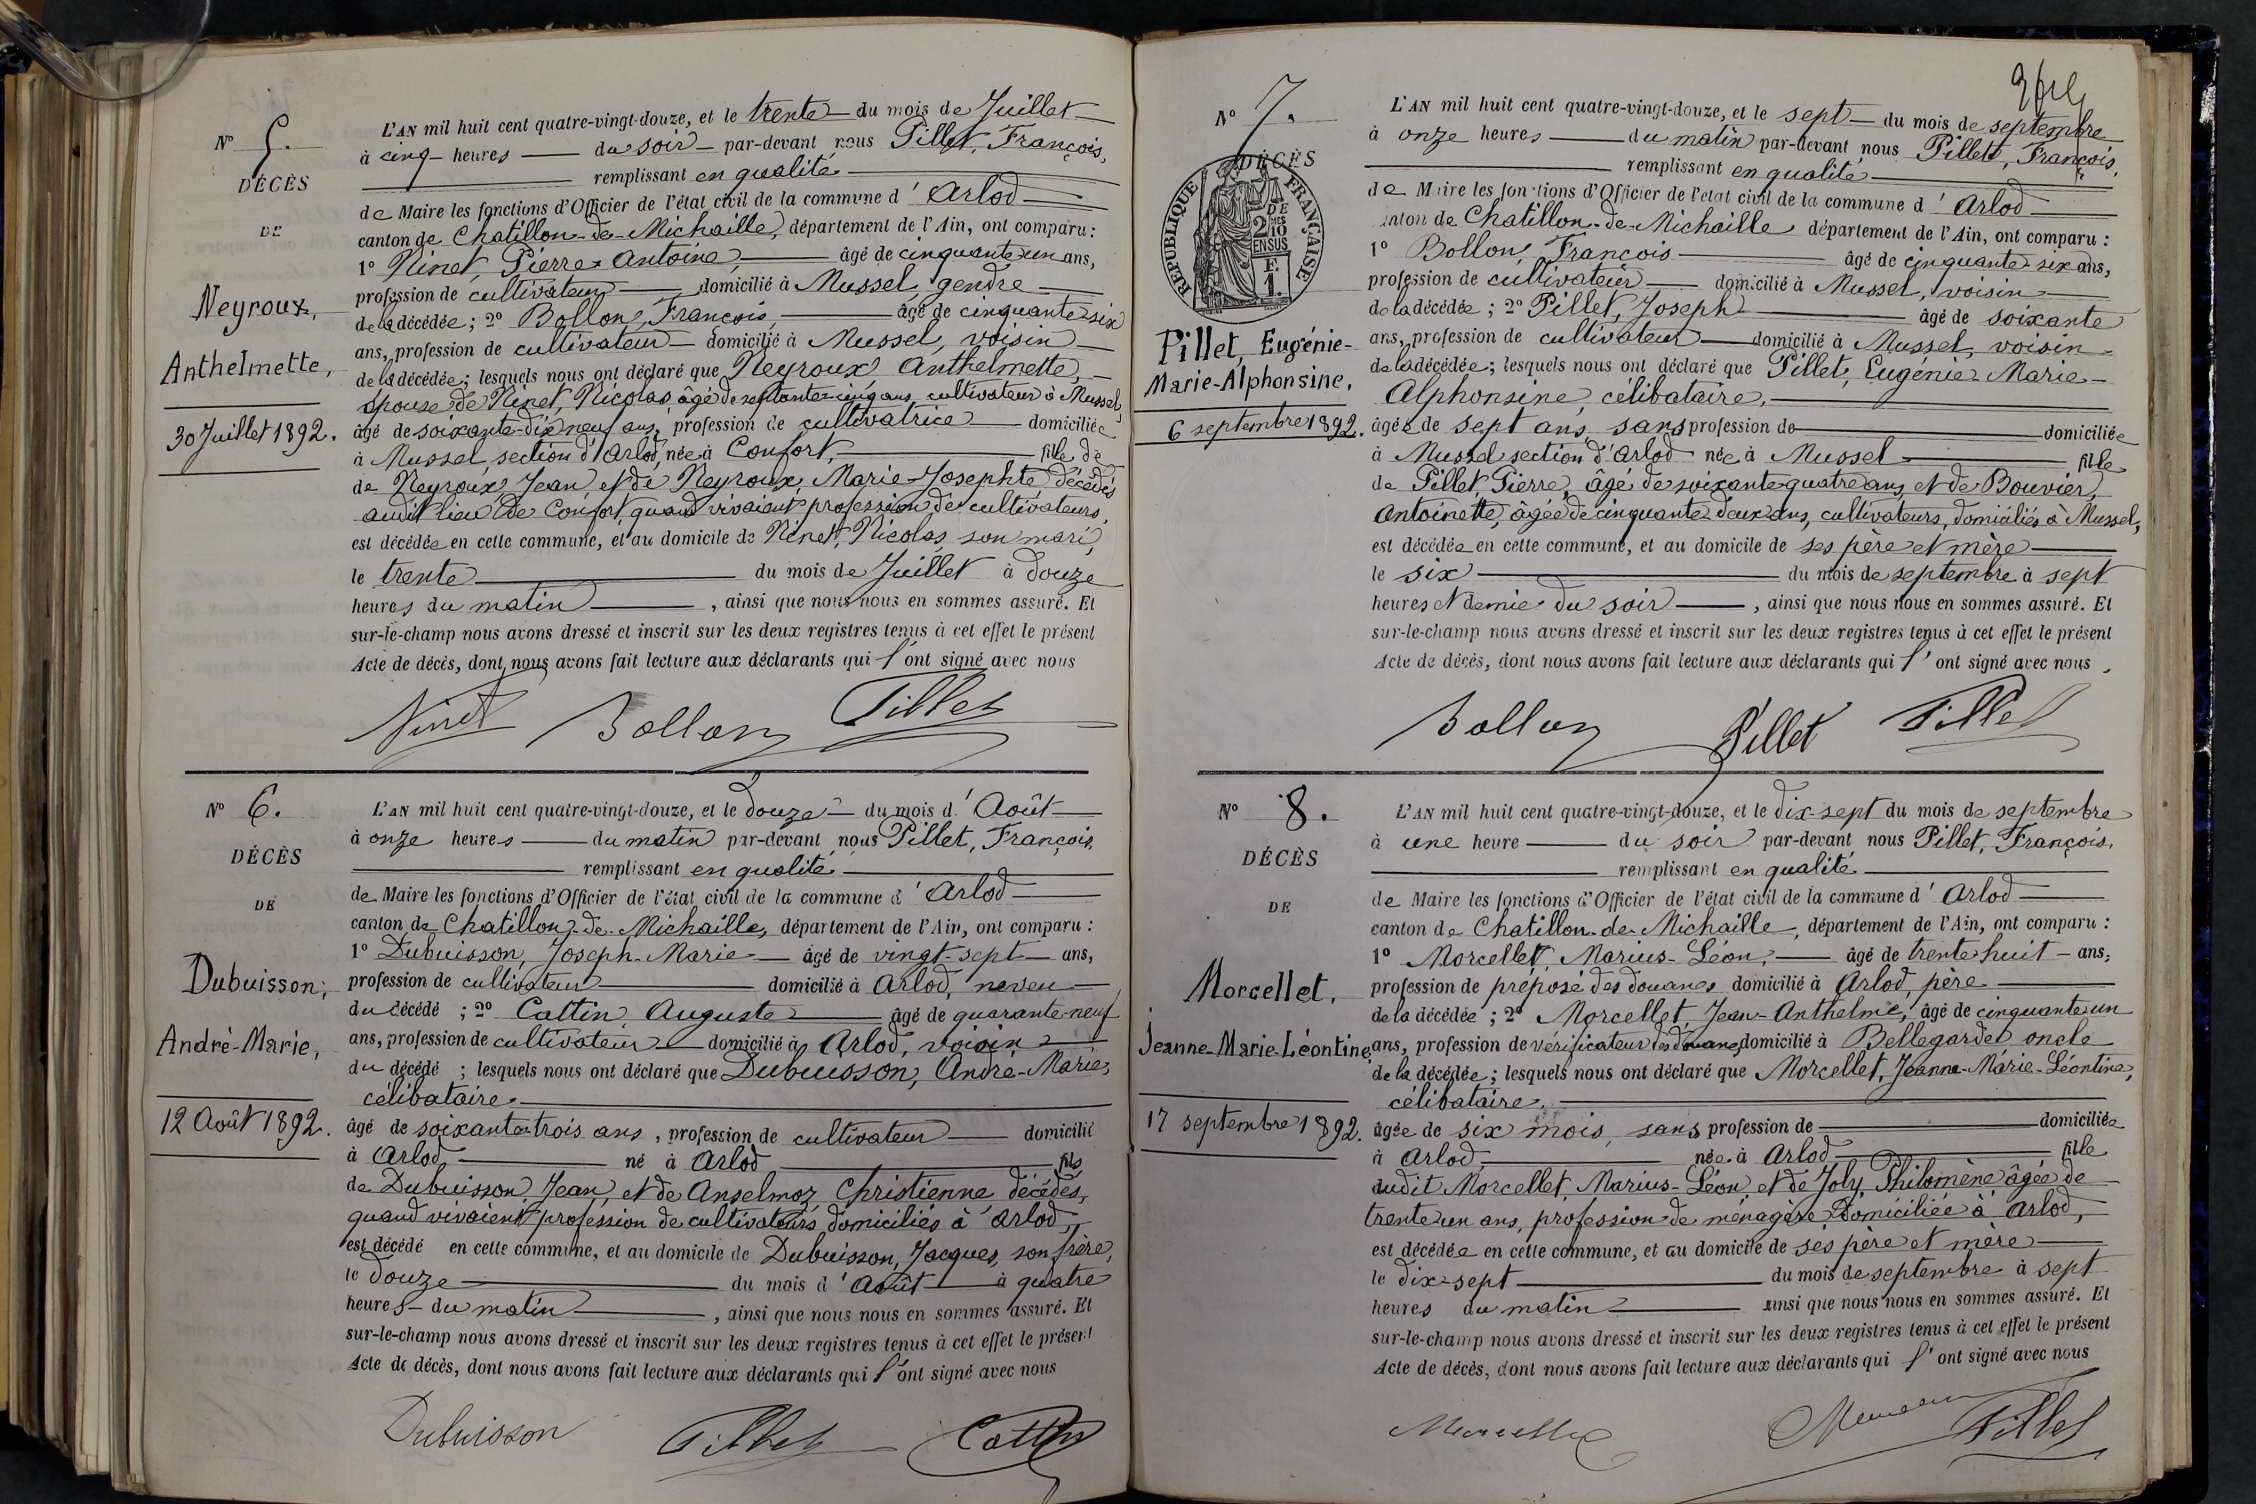 Nº 5.
DÉCÈS
DE
Neyroux,
Anthelmette,
30 Juillet 1892.
L'AN mil huit cent quatre-vingt-douze, et le trente du mois de Juillet
à cinq heures du soir par-devant nous Pillet, François,
remplissant en qualité
de Maire les fonctions d'Officier de l'état civil de la commune d'Arlod
canton de Chatillon-de-Michaille, département de l'Ain, ont comparu :
1º Ninet, Pierre-Antoine, âgé de cinquante un ans,
profession de cultivateur domicilié à Mussel, gendre
de la décédée ; 2º Bollon, François, âgé de cinquante-six
ans, profession de cultivateur domicilié à Mussel, voisin
de la décédée ; lesquels nous ont déclaré que Neyroux Anthelmette,
épouse de Ninet, Nicolas, âgé de septante-cinq ans, cultivateur à Mussel,
âgé de soixante-dix neuf ans, profession de cultivatrice domiciliée
à Mussel, section d'Arlod, née à Confort, fille de
de Neyroux, Jean et de Neyroux, Marie-Josephte décédés
audit lieu de Confort, quand vivaient profession de cultivateurs,
est décédée en cette commune, et au domicile de Ninet, Nicolas, son mari,
le trente du mois de Juillet à douze
heures du matin, ainsi que nous nous en sommes assuré. Et
sur-le-champ nous avons dressé et inscrit sur les deux registres tenus à cet effet le présent
Acte de décès, dont nous avons fait lecture aux déclarants qui l'ont signé avec nous
Ninet Bollon Pillet
Nº 6.
DÉCÈS
DE
Dubuisson,
André-Marie,
12 Août 1892.
L'AN mil huit cent quatre-vingt-douze, et le douze du mois d'Août
à onze heures du matin par-devant nous Pillet, François,
remplissant en qualité
de Maire les fonctions d'Officier de l'état civil de la commune d'Arlod
canton de Chatillon-de-Michaille, département de l'Ain, ont comparu :
1º Dubuisson, Joseph-Marie âgé de vingt-sept ans,
profession de cultivateur domicilié à Arlod, neveu
du décédé ; 2º Cattin, Auguste âgé de quarante-neuf
ans, profession de cultivateur domicilié à Arlod, voisin
du décédé ; lesquels nous ont déclaré que Dubuisson, André-Marie,
célibataire
âgé de soixante trois ans, profession de cultivateur domicilié
à Arlod, né à Arlod fils
de Dubuisson, Jean, et de Anselmoz, Christienne décédés,
quand vivaient profession de cultivateurs domiciliés à Arlod,
est décédé en cette commune, et au domicile de Dubuisson, Jacques, son frère,
le douze du mois d'Août à quatre
heures du matin, ainsi que nous nous en sommes assuré. Et
sur-le-champ nous avons dressé et inscrit sur les deux registres tenus à cet effet le présent
Acte de décès, dont nous avons fait lecture aux déclarants qui l'ont signé avec nous
Dubuisson Pillet Cattin
Nº 7.
DÉCÈS
RÉPUBLIQUE FRANÇAISE
DE
2 MES 10
EN SUS
F.
1.
Pillet, Eugénie-
Marie-Alphonsine,
6 septembre 1892.
L'AN mil huit cent quatre-vingt-douze, et le sept du mois de septembre
à onze heures du matin par-devant nous Pillet, François,
remplissant en qualité
de Maire les fonctions d'Officier de l'état civil de la commune d'Arlod
canton de Chatillon-de-Michaille département de l'Ain, ont comparu :
1º Bollon, François âgé de cinquante-six ans,
profession de cultivateur domicilié à Mussel, voisin
de la décédée ; 2º Pillet, Joseph âgé de soixante
ans, profession de cultivateur domicilié à Mussel, voisin
de la décédée ; lesquels nous ont déclaré que Pillet, Eugénie-Marie-
Alphonsine, célibataire,
âgée de sept ans, sans profession de domiciliée
à Mussel section d'Arlod née à Mussel fille
de Pillet, Pierre, âgé de soixante-quatre ans, et de Bouvier,
Antoinette, âgée de cinquante-deux ans, cultivateurs, domiciliés à Mussel,
est décédée en cette commune, et au domicile de ses père et mère
le six du mois de septembre à sept
heures et demie du soir, ainsi que nous nous en sommes assuré. Et
sur-le-champ nous avons dressé et inscrit sur les deux registres tenus à cet effet le présent
Acte de décès, dont nous avons fait lecture aux déclarants qui l'ont signé avec nous,
Bollon Pillet Pillet
Nº 8.
DÉCÈS
DE
Morcellet,
Jeanne-Marie-Léontine,
17 septembre 1892.
L'AN mil huit cent quatre-vingt-douze, et le dix-sept du mois de septembre
à une heure du soir par-devant nous Pillet, François,
remplissant en qualité
de Maire les fonctions d'Officier de l'état civil de la commune d'Arlod
canton de Chatillon-de-Michaille, département de l'Ain, ont comparu :
1º Morcellet, Marius-Léon, âgé de trente huit ans,
profession de préposé des douanes domicilié à Arlod, père
de la décédée ; 2º Morcellet, Jean-Anthelme, âgé de cinquante un
ans, profession de vérificateur des douanes domicilié à Bellegarde, oncle
de la décédée ; lesquels nous ont déclaré que Morcellet, Jeanne-Marie-Léontine,
célibataire,
âgée de six mois, sans profession de domiciliée
à Arlod, née à Arlod fille
dudit Morcellet, Marius-Léon, et de Joly, Philomène âgée de
trente un ans, profession de ménagère domiciliée à Arlod,
est décédée en cette commune, et au domicile de ses père et mère
le dix-sept du mois de septembre à sept
heures du matin ainsi que nous nous en sommes assuré. Et
sur-le-champ nous avons dressé et inscrit sur les deux registres tenus à cet effet le présent
Acte de décès, dont nous avons fait lecture aux déclarants qui l'ont signé avec nous
Morcellet Pillet